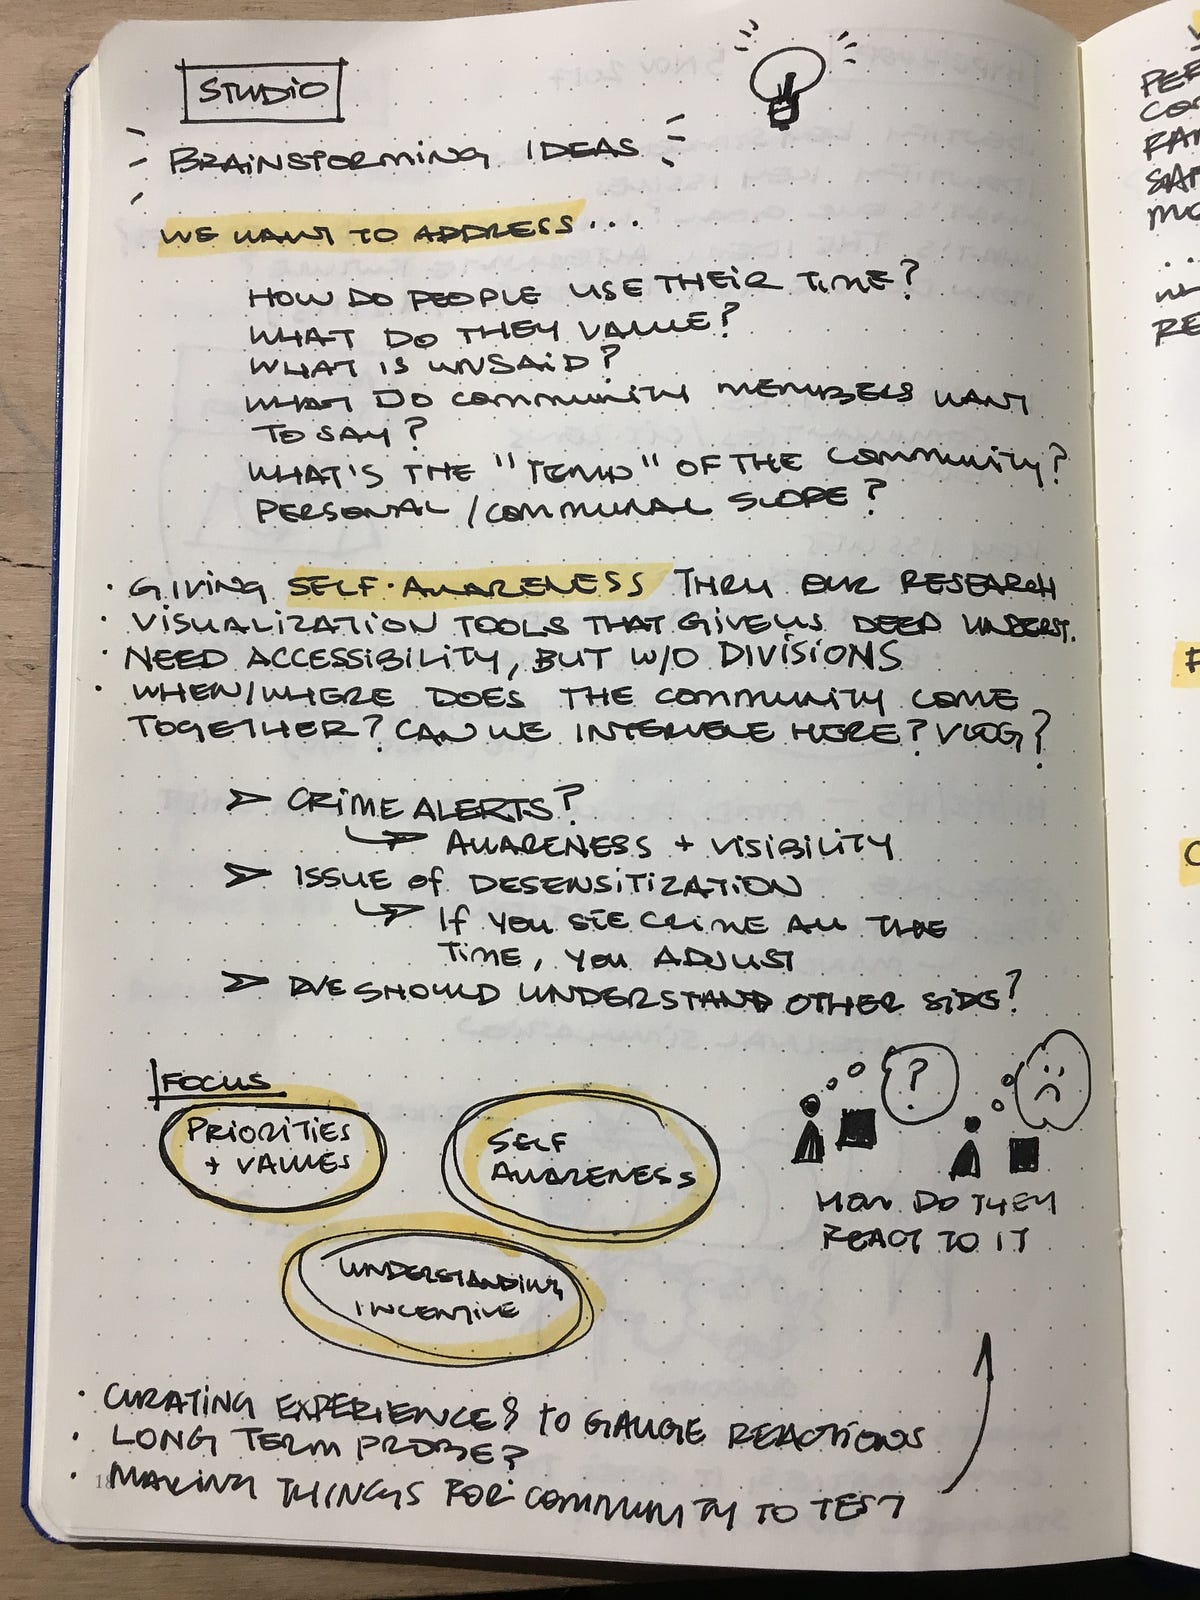 STUDIO
BRAINSTORMING IDEAS
WE WANT TO ADDRESS...
HOW DO PEOPLE USE THEIR TIME?
WHAT DO THEY VALUE?
WHAT IS UNSAID?
WHAT DO COMMUNITY MEMBERS WANT
TO SAY?
WHAT'S THE "TEMP" OF THE COMMUNITY?
PERSONAL / COMMUNAL SCOPE?
• GIVING SELF-AWARENESS THRU OUR RESEARCH
• VISUALIZATION TOOLS THAT GIVE US DEEP UNDERST.
• NEED ACCESSIBILITY, BUT W/O DIVISIONS
• WHEN/WHERE DOES THE COMMUNITY COME
TOGETHER? CAN WE INTERVENE HERE? VLOG?
➢ CRIME ALERTS?
↳ AWARENESS + VISIBILITY
➢ ISSUE of DESENSITIZATION
↳ If YOU SEE CRIME ALL THE
TIME, YOU ADJUST
➢ SHOULD UNDERSTAND OTHER SIDES?
FOCUS
PRIORITIES
+ VALUES
SELF
AWARENESS
UNDERSTANDING
INCENTIVE
?
HOW DO THEY
REACT TO IT
• CURATING EXPERIENCES TO GAUGE REACTIONS
• LONG TERM PROBE?
• MAKING THINGS FOR COMMUNITY TO TEST